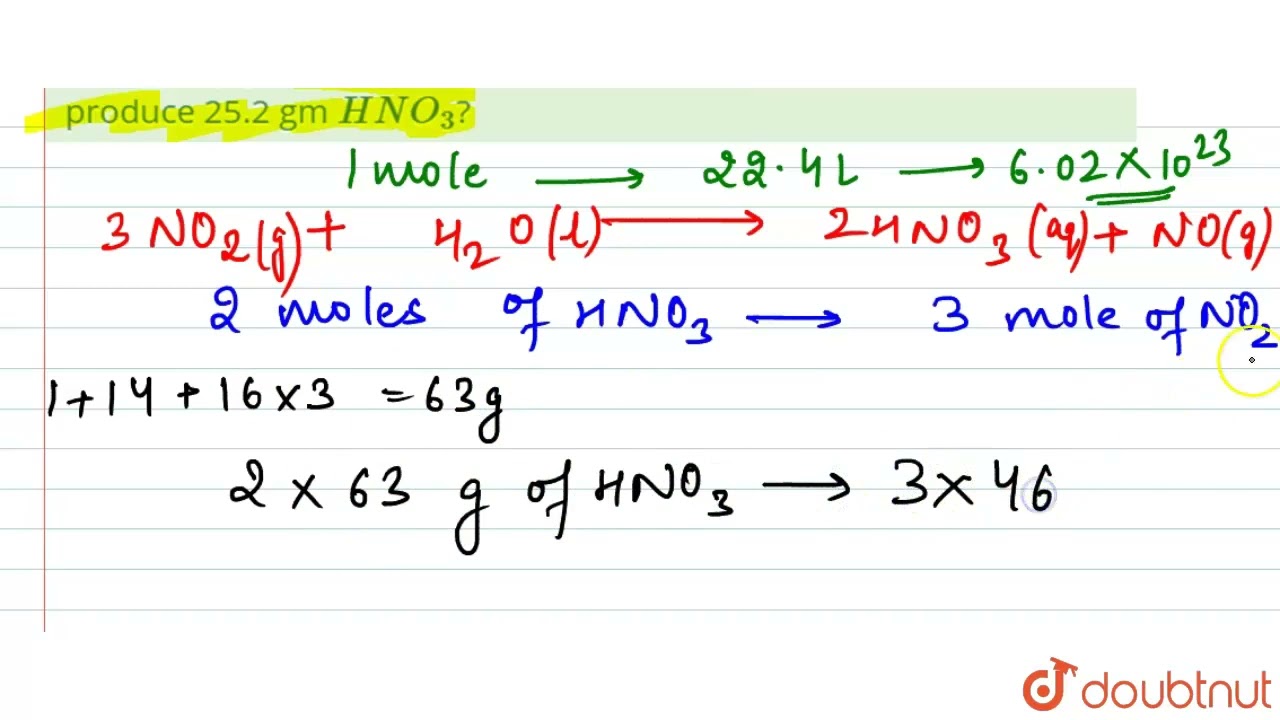 produce 25.2 gm HNO₃?
1 mole → 22.4L → 6.02×10²³
3NO₂(g) + H₂O(l) → 2HNO₃(aq) + NO(g)
2 moles of HNO₃ → 3 mole of NO₂
1+14+16×3 = 63g
2×63 g of HNO₃ → 3×46
doubtnut